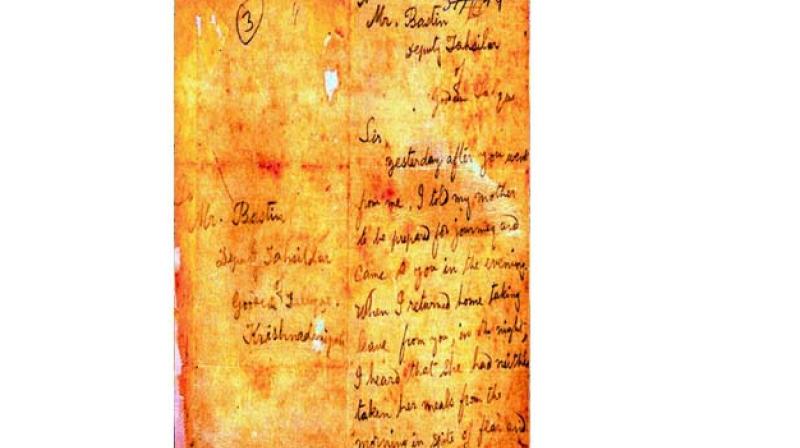 3
Mr. Bastin
Deputy Tahsildar
of
Krishnadevipet
Mr. Bastin
Deputy Tahsildar
of
Sir,
yesterday after you went
from me, I told my mother
to be prepared for journey and
came to you in the evening.
When I returned home taking
leave from you, in the night,
I heard that she had neither
taken her meals from the
morning in spite of fear and